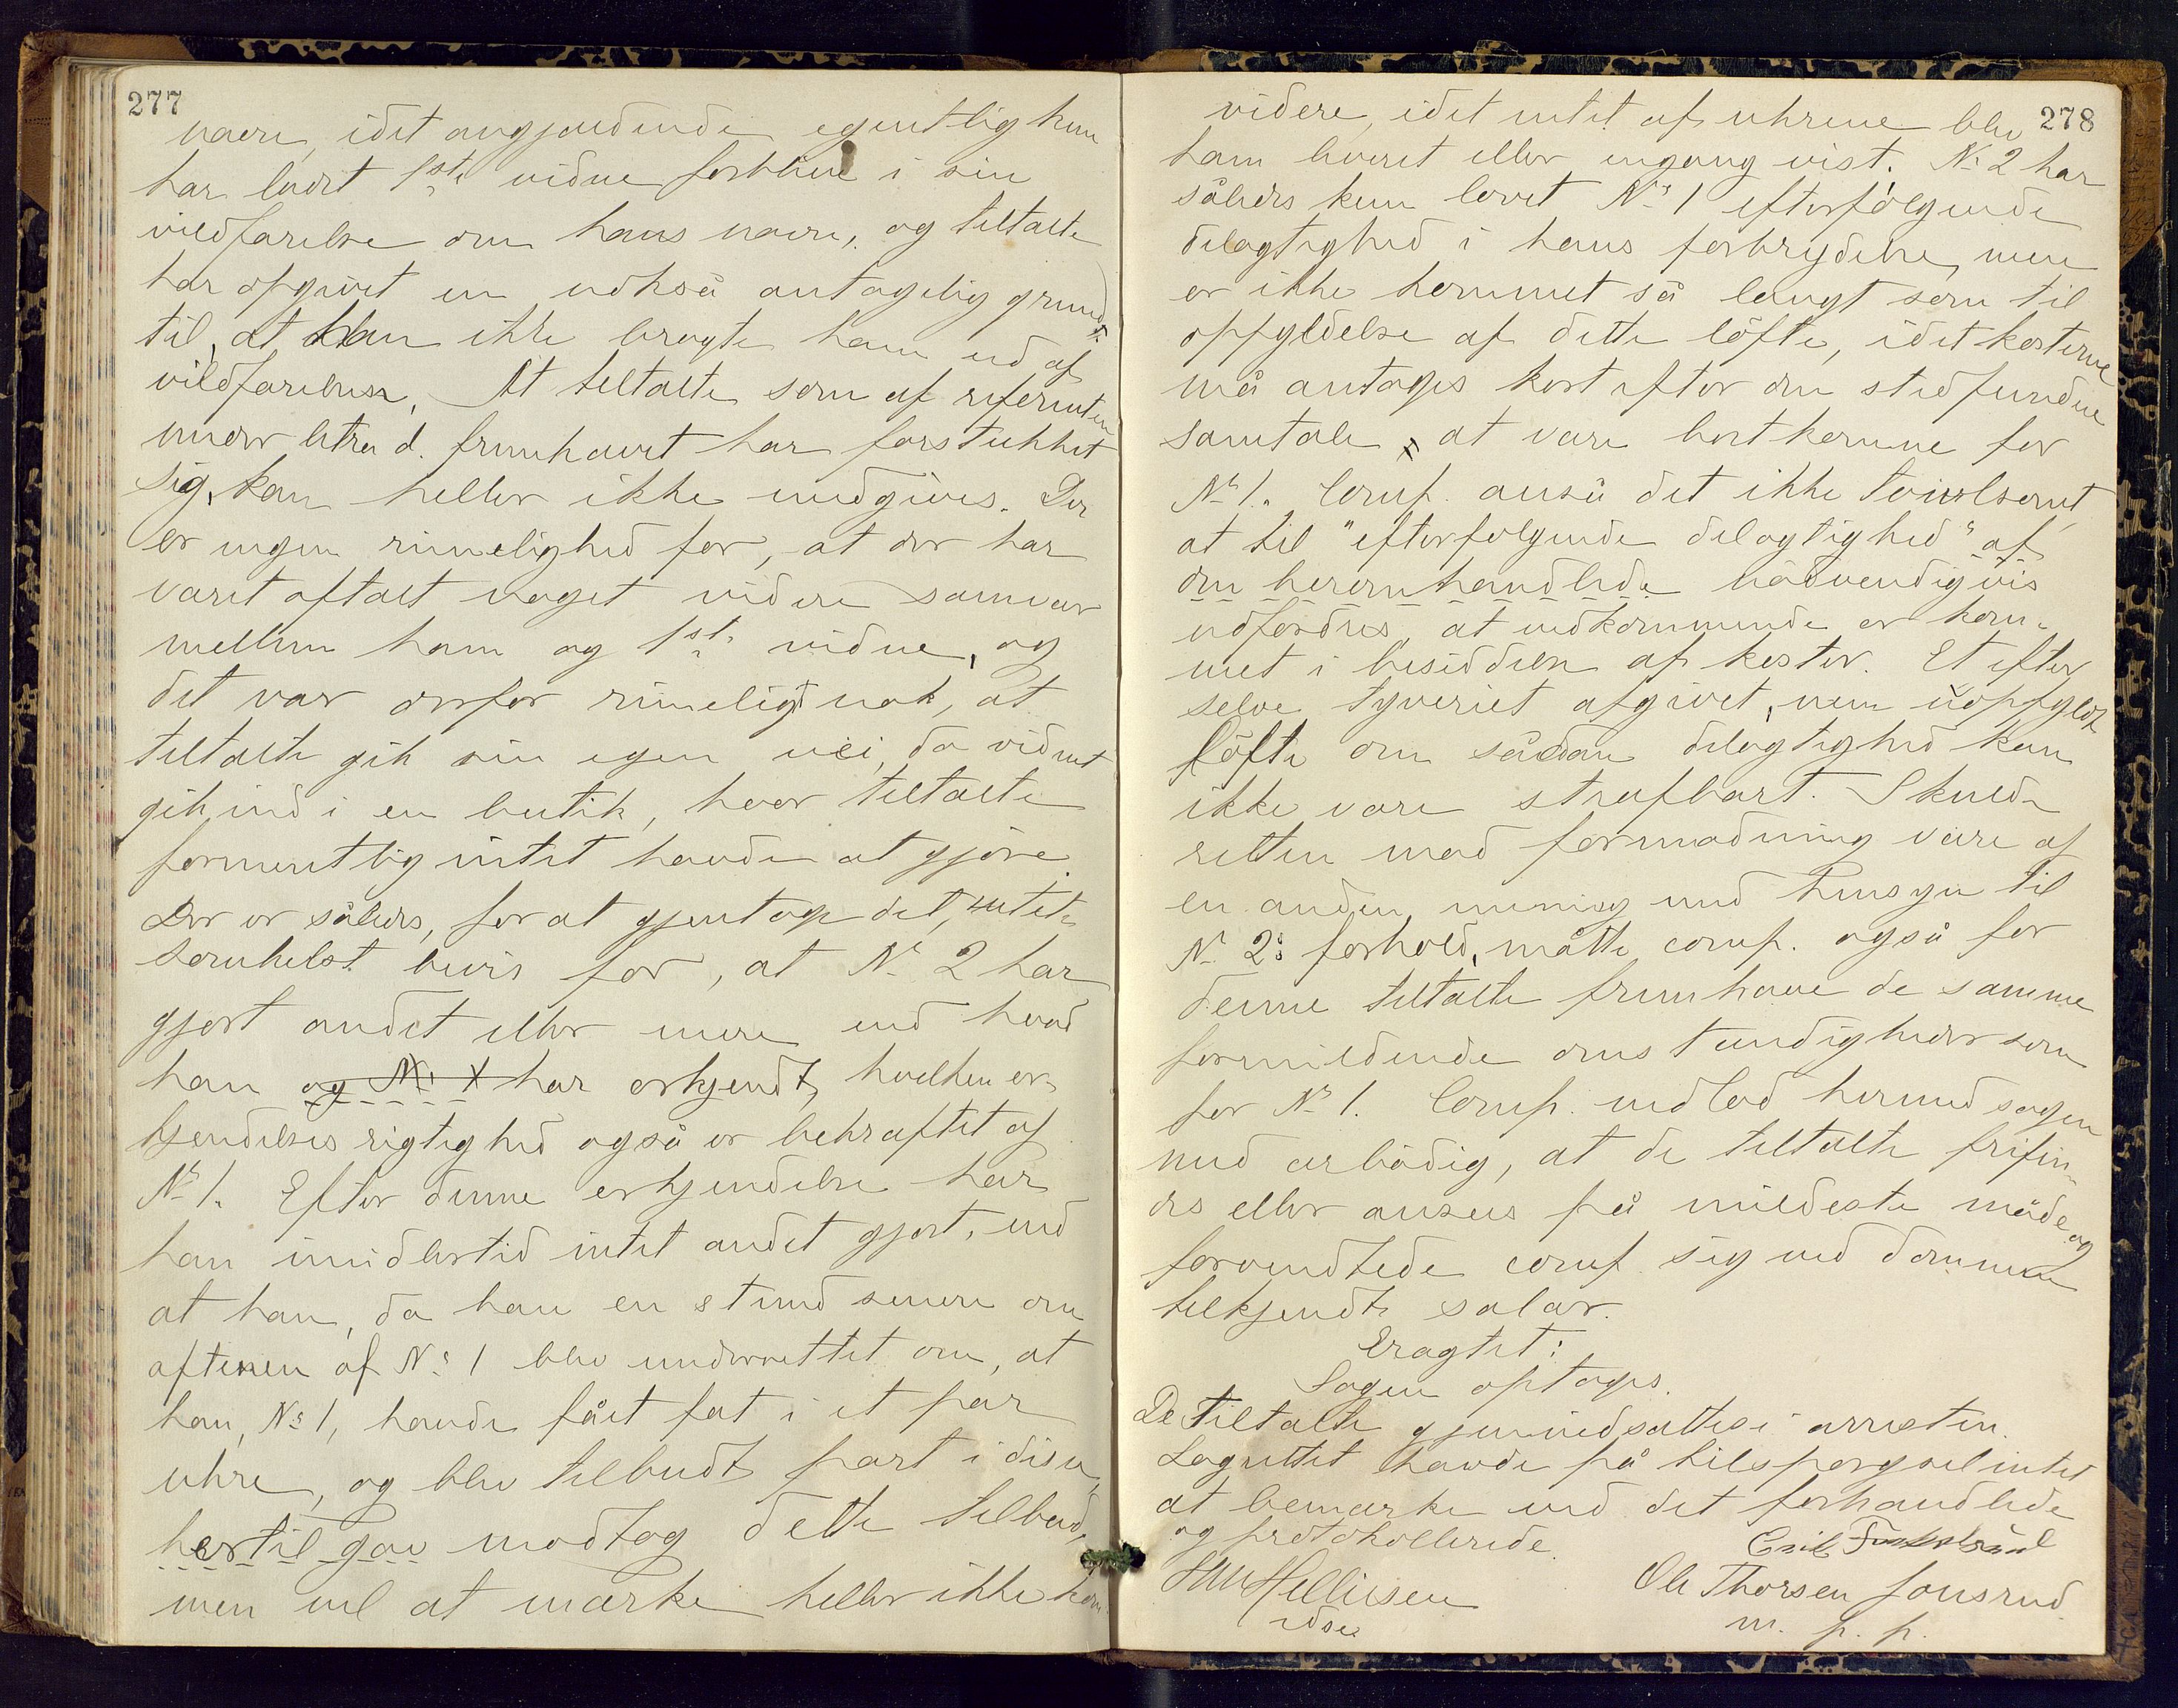 277
navn, idet angjældende egentlig kun
har ladet 1ste vidne forblive i sin
vildfarelse om hans navn, og tiltalte
har opgivet en nokså antagelig grund
til, at han ikke bragte ham ud af
vildfarelsen. At tiltalte som af referenten
under litra d. fremhævet har forstukket
sig, kan heller ikke medgives. Der
er ingen rimelighed for, at der har
været aftalt noget videre samvær
mellem ham og 1ste vidne, og
det var derfor rimeligt nok, at
tiltalte gik sin egen vei, da vidnet
gik ind i en butik, hvor tiltalte
formentlig intet havde at gjøre.
Der er således, for at gjentage det, intet
somhelst bevis for, at No 2 har
gjort andet eller mere end hvad
han og No 1 har erkjendt, hvilken er-
kjendelses rigtighed også er bekræftet af
No 1. Efter denne erkjendelse har
han imidlertid intet andet gjort, end
at han, da han en stund senere om
aftenen af No 1 blev underrettet om, at
han, No 1, havde fået fat i et par
uhre, og blev tilbudt part i disse,
hertil gav modtog dette tilbud,
men vel at mærke heller ikke kom
278
videre, idet intet af uhrene blev
ham leveret eller engang vist. No 2 har
således kun lovet No 1 efterfølgende
delagtighed i hans forbrydelse, men
er ikke kommet så langt som til
opfyldelse af dette løfte, idet kosterne
må antages kort efter den stedfundne
samtale at være bortkomne for
No 1. Comp. anså det ikke tvivlsomt,
at til "efterfølgende delagtighed" af
den heromhandlede nødvendigvis
udfordres, at vedkommende er kom-
met i besiddelse af koster. Et efter
selve tyveriet afgivet, men uopfyldt
løfte om sådan delagtighed kan
ikke være strafbart. Skulde
retten mod formodning være af
en anden mening med hensyn til
No 2s forhold, måtte comp. også for
denne tiltalte fremhæve de samme
formildende omstændigheder som
for No 1. Comp. indlod hermed sagen
med ærbødig, at de tiltalte frifin-
des eller ansees på mildeste måde og
forventede comp. sig ved dommen
tilkjendt salær.
Eragtet:
Sagen optages.
De tiltalte gjenindsattes i arresten.
Lagrettet havde på tilspørgsel intet
at bemærke ved det forhandlede
og protokollerede.
Emil
Hellisen
Ole Thorsen Jonsrud
m. p. p.